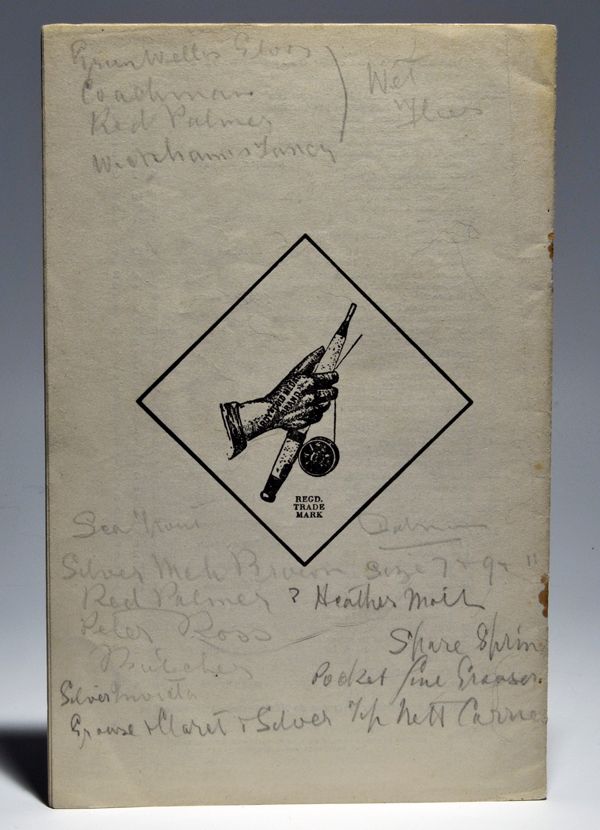 Greenwell's Glory
Coachman
Red Palmer
Wickhams Fancy
Wet
Flies
REGD.
TRADE
MARK
Sea Trout
Salmon
Silver March Brown Size 7 & 9
Red Palmer ? Heather Moth
Peter Ross
Butcher
Spare Sprin
Silver Invicta
Pocket line Greaser
Grouse & Claret & Silver Tip Nett Carrie